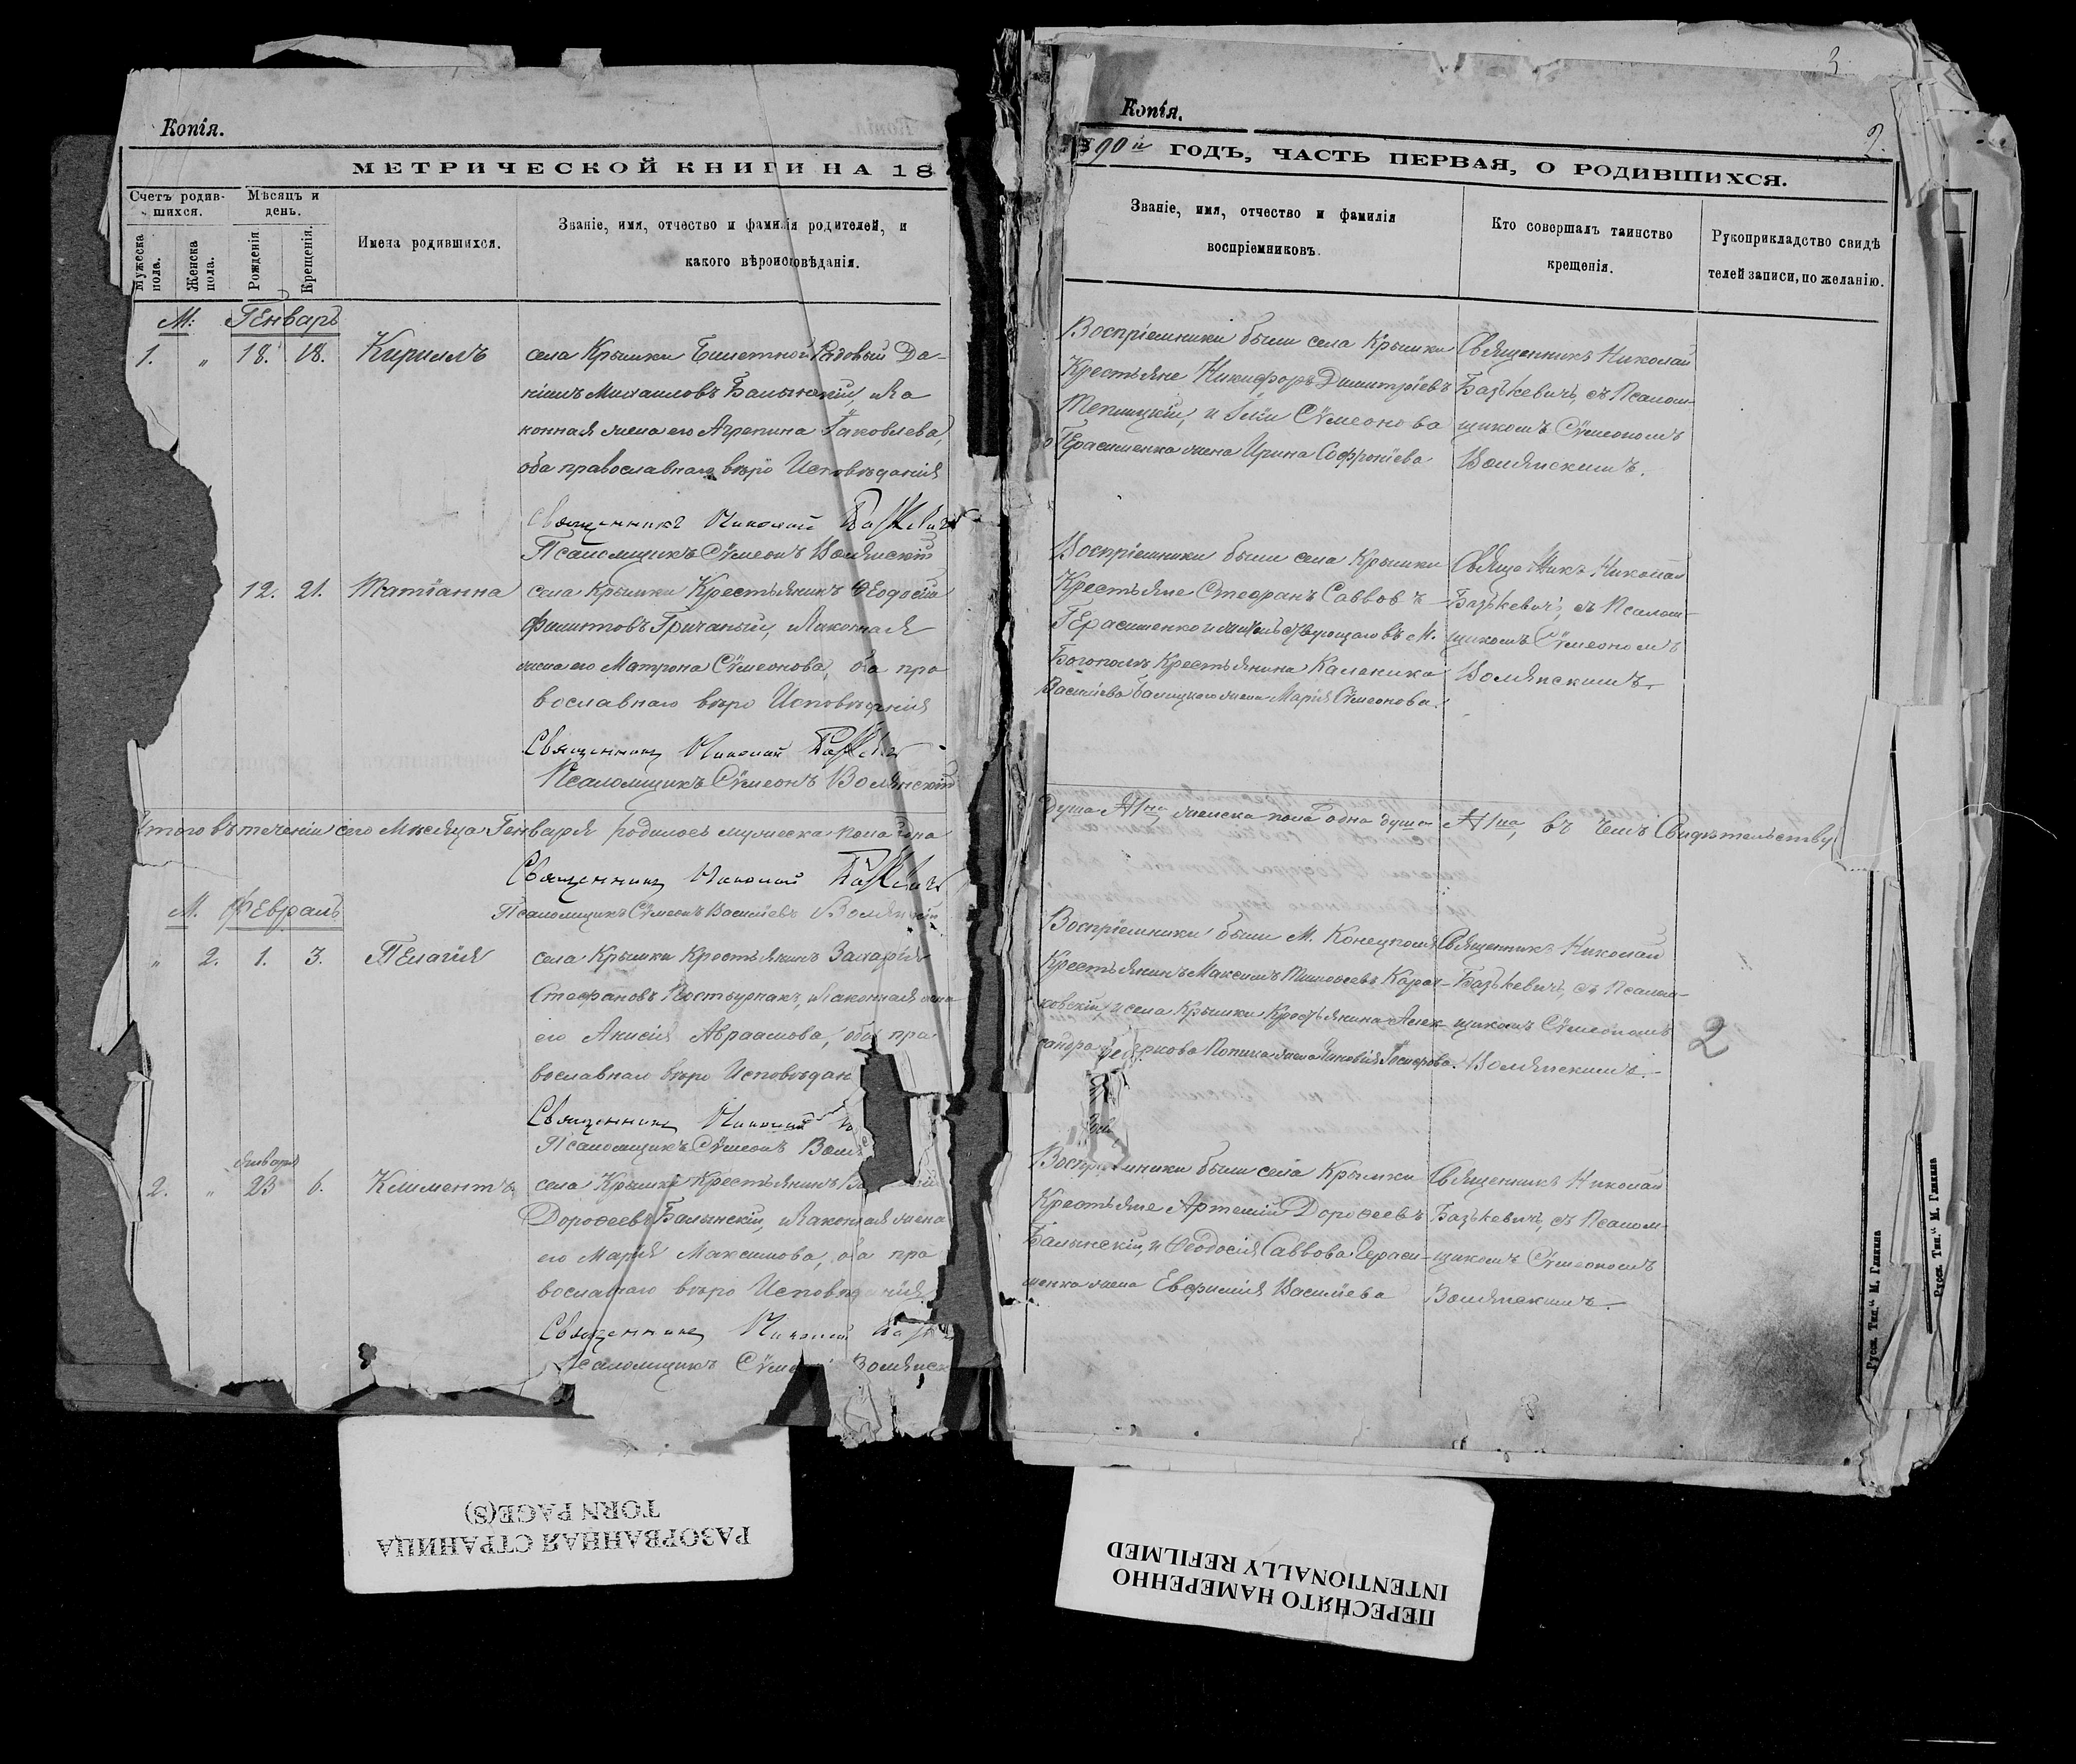 Копія.
МЕТРИЧЕСКОЙ КНИГИ НА 18
Счетъ родив-
шихся.
Мѣсяцъ и
день.
Мужеска
пола.
Женска
пола.
Рожденія
Крещенія.
Имена родившихся.
Званіе, имя, отчество и фамилія родителей, и
какого вѣроисповѣданія.
М: Генварь
1. " 18. 18. Кириллъ
села Крымки Билетной Рядовый Да-
ніилъ Михаиловъ Балынскій, и за
конная жена его Агрепина Іаковлева,
оба православнаго вѣро Исповѣданія
Священникъ Николай
Псаломщикъ Сѵмеонъ Волянскій
12. 21. Татіанна
села Крымки Крестьянинъ Ѳеодосій
Филиповъ Гричаный, и законная
жена его Матрона Сѵмеонова, оба пра
вославнаго вѣро Исповѣданія
Священникъ Николай
Псаломщикъ Сѵмеонъ Волянскій
Итого въ теченіи сего Мѣсяца Генваря родилось мужеска пола одна
Священникъ Николай
Псаломщикъ Сѵмеонъ Василіевъ Волянскій
М. Февраль
" 2. 1. 3. Пелагія
села Крымки Крестьянинъ Захарія
Стефановъ и законная жена
его Анисія Авраамова, оба пра
вославнаго вѣро Исповѣдан
Священникъ Николай
Псаломщикъ Сѵмеонъ Воля
Января
2. " 23 6. Климентъ
села Крымки Крестьянинъ
Дороѳеевъ Балынскій, и законная жена
его Марія Максимова, оба пра
вославнаго вѣро Исповѣданія
Священникъ Николай
Псаломщикъ Сѵмео Волянск
3
Копія.
2.
1890й ГОДЪ, ЧАСТЬ ПЕРВАЯ, О РОДИВШИХСЯ.
Званіе, имя, отчество и фамилія
воспріемниковъ.
Кто совершалъ таинство
крещенія.
Рукоприкладство свидѣ
телей записи, по желанію.
Воспріемники были села Крымки
Крестьяне Никифоръ Димитріевъ
Теплицкій, и Іліи Сѵмеонова
Герасименка жена Ирина Софроніева
Священникъ Николай
Базькевичъ, съ Псалом-
щикомъ Сѵмеономъ
Волянскимъ.
Воспріемники были села Крымки
Крестьяне Стефанъ Саввовъ
Герасименко и въ М.
Богополѣ Крестьянина Каленика
Василіева Балицкаго жена Марія Сѵмеонова.
Священникъ Николай
Базькевичъ, съ Псалом-
щикомъ Сѵмеономъ
Волянскимъ.
душа женска пола одна душа въ чемъ Свидѣтельству
Воспріемники были М. Конецполя
Крестьянинъ Максимъ Тимоѳеевъ Карач-
ковскій, и села Крымки Крестьянина Алек
сандра Попика жена
Священникъ Николай
Базькевичъ, съ Псалом-
щикомъ Сѵмеономъ
Волянскимъ.
2
Воспріемники были села Крымки
Крестьяне Артемій Дороѳеевъ
Балынскій, и Ѳеодосія Саввова Гераси-
менка жена Евфимія Василіева
Священникъ Николай
Базькевичъ, съ Псалом-
щикомъ Сѵмеономъ
Волянскимъ.
Русск. Тип." М. Гликина
Русск. Тип." М. Гликина
РАЗОРВАННАЯ СТРАНИЦА
TORN PAGE(S)
ПЕРЕСНЯТО НАМЕРЕННО
INTENTIONALLY REFILMED